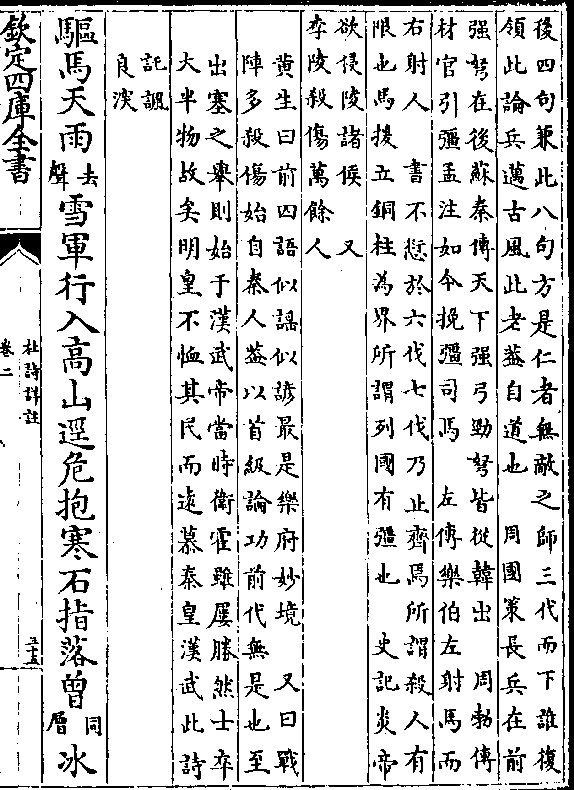 後四句兼此八句方是仁者無敵之師三代而下誰復
領此論兵邁古風此老葢自道也　周國策長兵在前
强弩在後蘇秦傳天下强弓勁弩皆從韓出　周勃傳
材官引彊孟注如今挽彊司馬　左傳樂伯左射馬而
右射人　書不愆於六伐七伐乃止齊焉所謂殺人有
限也馬援立銅柱為界所謂列國有彊也　史記炎帝
欲侵陵諸侯　又
李陵殺傷萬餘人
黄生曰前四語似謡似諺最是樂府妙境　又曰戰
陣多殺傷始自秦人葢以首級論功前代無是也至
出塞之舉則始于漢武帝當時衛霍雖屢勝然士卒
大半物故矣明皇不恤其民而遠慕秦皇漢武此詩
託諷
良深
驅馬天雨去聲雪軍行入高山逕危抱寒石指落曾同層冰
欽定四庫全書
杜詩詳註
卷二
三十五